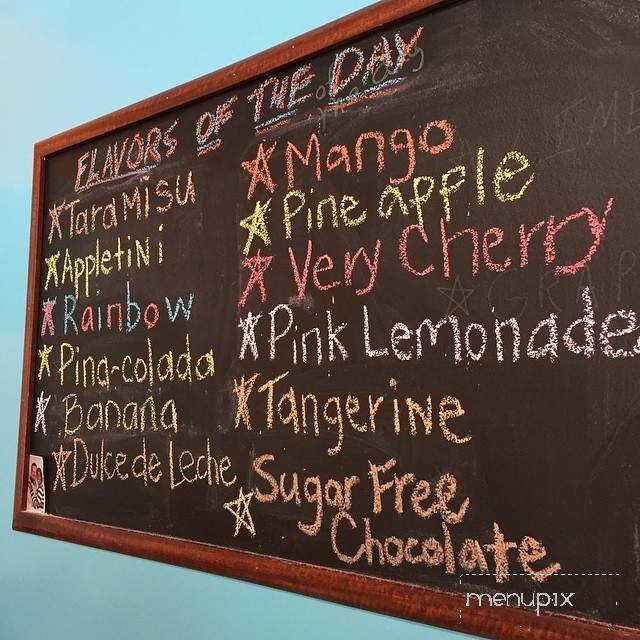 FLAVORS OF THE DAY
TaraMisu
AppletiNi
Rainbow
Pina-colada
Banana
Dulce de Leche
Mango
Pine apple
Very Cherry
Pink Lemonade
TangeriNe
Sugar Free
Chocolate
menupix